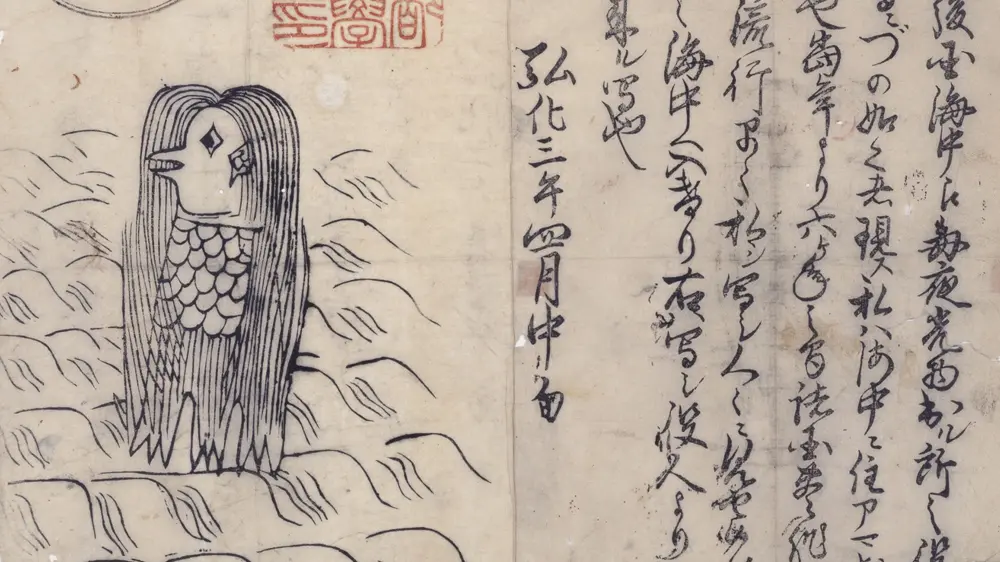 後国海中江毎夜光物出ル所之役
るニづの如く者現ス私ハ海中ニ住アマ
也當年より六ヶ年之間諸国豊作
流行早々私シ写シ人々ニ見セ候
海中へ入けり右写シ役人より
来ル写也
弘化三年四月中旬
學
印